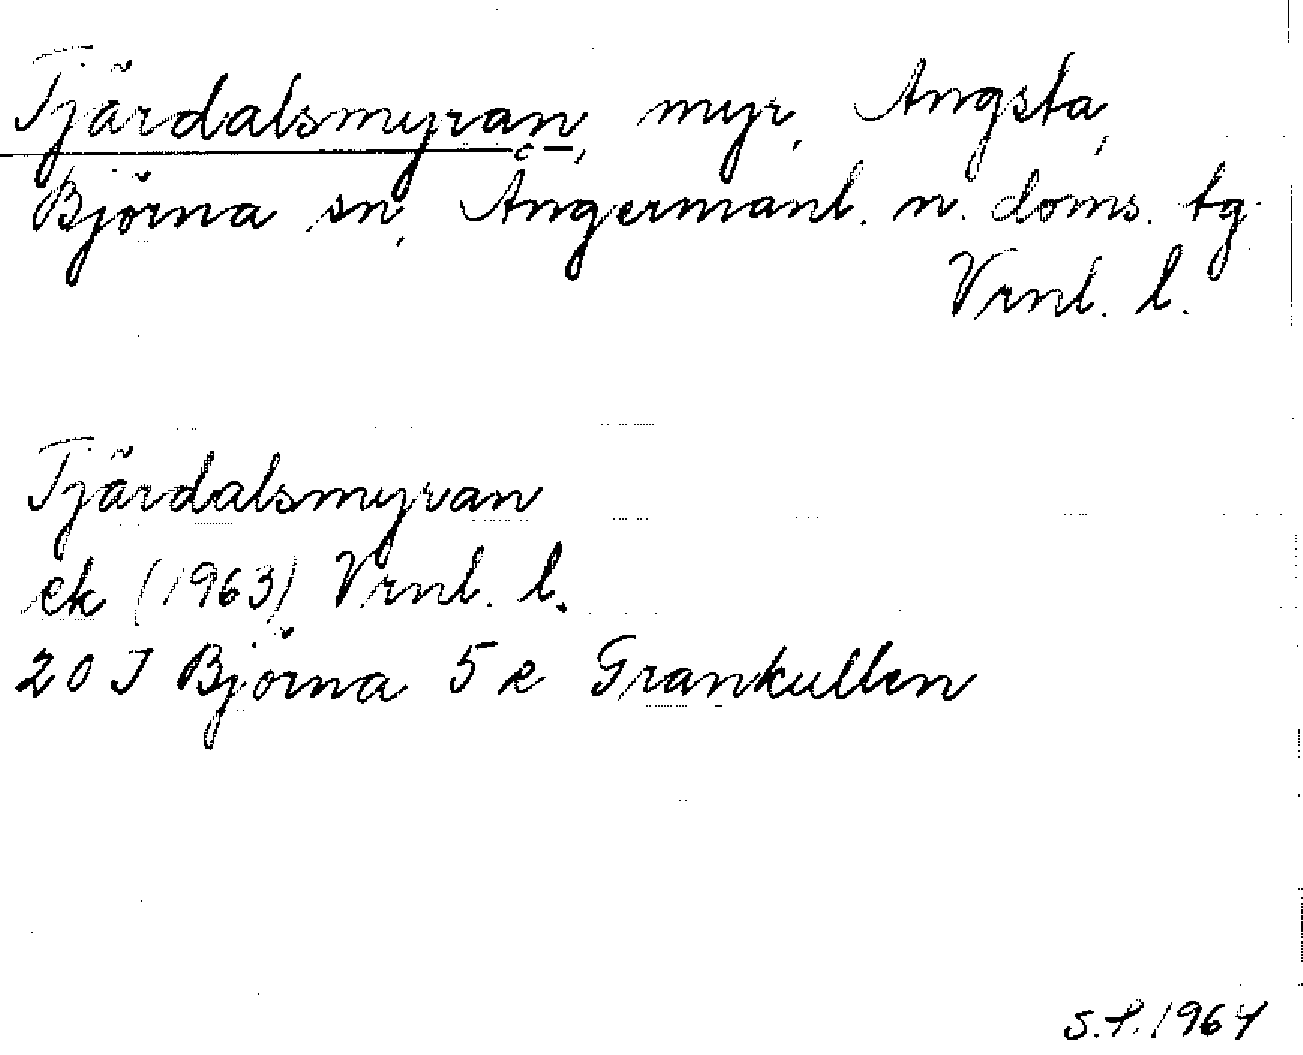 Tjärdalsmyran, myr, Angsta,
Björna sn, Ångermanl. n. doms. tg.
Vrnl. l.
Tjärdalsmyran
ek (1963) Vrnl. l.
20 J Björna 5 e Grankullen
S.P. 1964